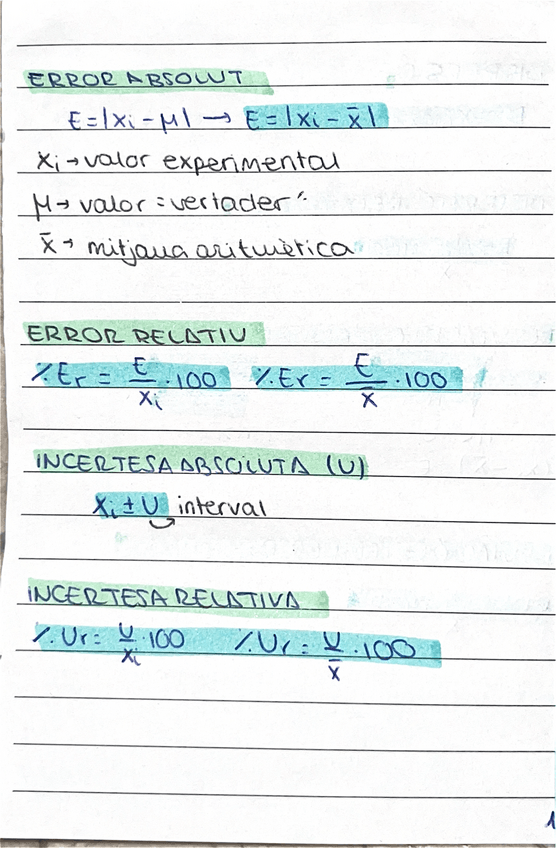 ERROR ABSOLUT
E = |xi - μ| → E = |xi - x̄|
xi → valor experimental
μ → valor "vertader"
x̄ → mitjana aritmètica
ERROR RELATIU
%Er = E/xi · 100 %Er = E/x̄ · 100
INCERTESA ABSOLUTA (U)
xi ± U interval
INCERTESA RELATIVA
%Ur = U/xi · 100 %Ur = U/x̄ · 100
1